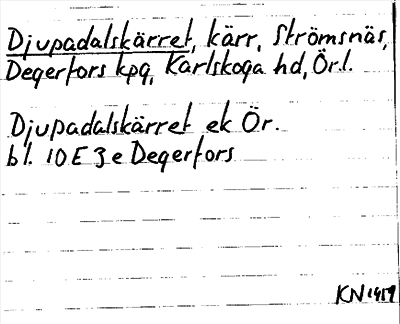 Djupadalskärret, kärr, Strömsnäs,
Degerfors kpg, Karlskoga hd, Örl.
Djupadalskärret ek Ör.
bl. 10E 3e Degerfors